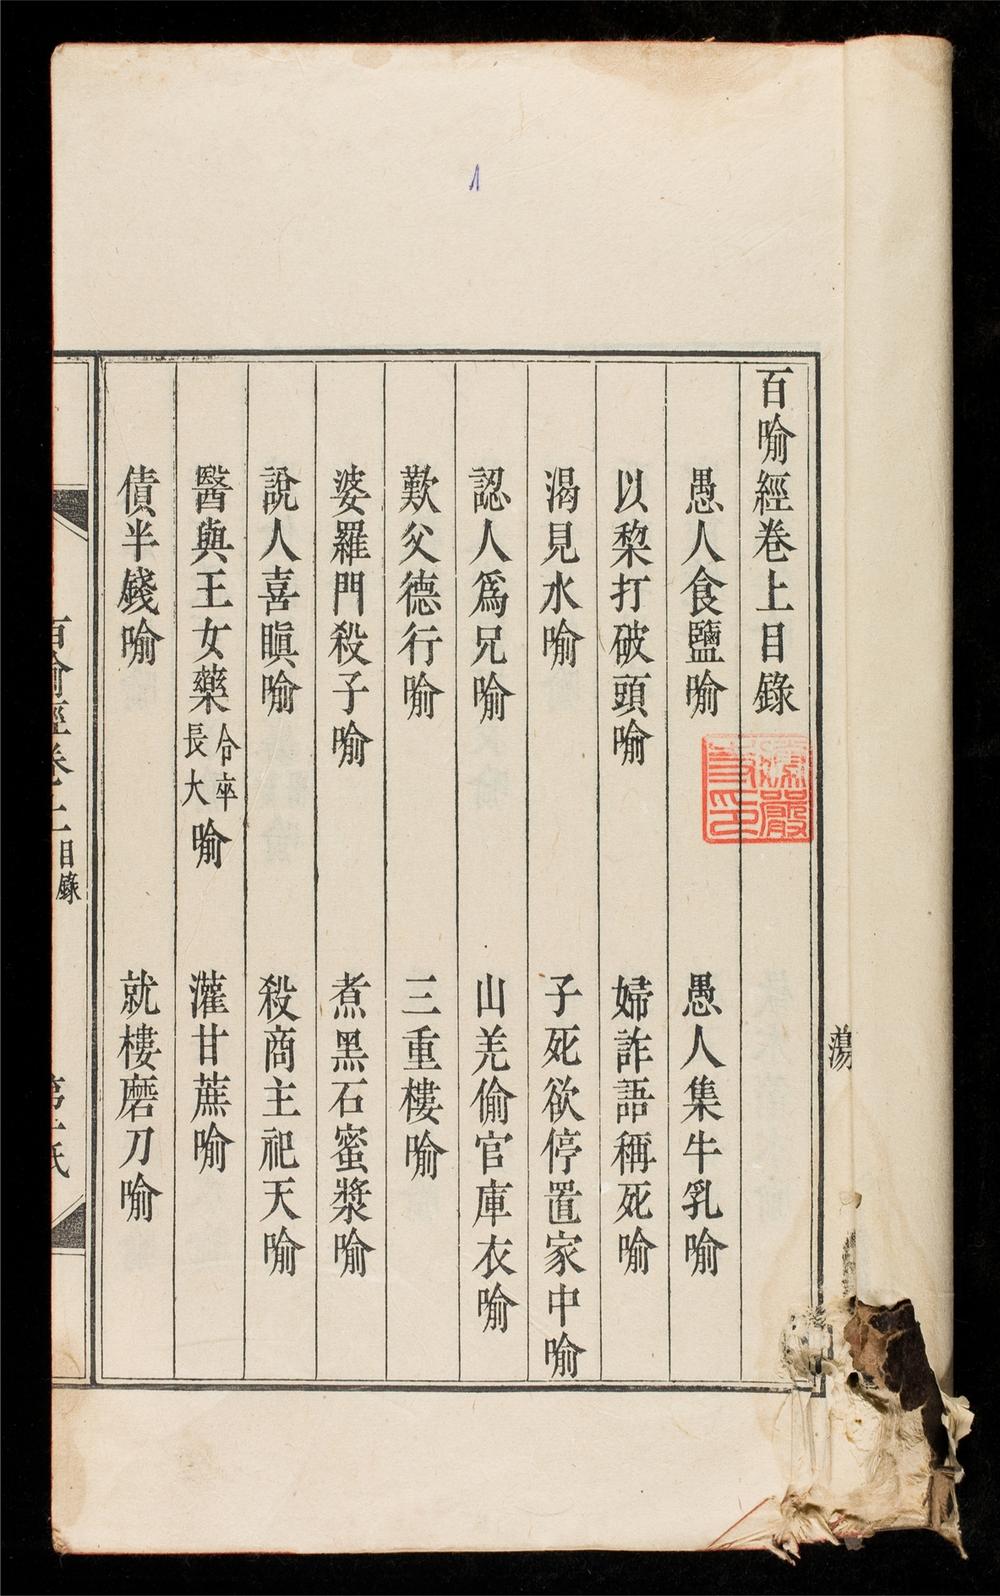 百喻經卷上目錄
愚人食鹽喻　愚人集牛乳喻
以棃打破頭喻　婦詐語稱死喻
渴見水喻　子死欲停置家中喻
認人爲兄喻　山羌偷官庫衣喻
歎父德行喻　三重樓喻
婆羅門殺子喻　煮黑石蜜漿喻
說人喜瞋喻　殺商主祀天喻
醫與王女藥令卒長大喻　灌甘蔗喻
債半錢喻　就樓磨刀喻
百喻經卷上目錄
1